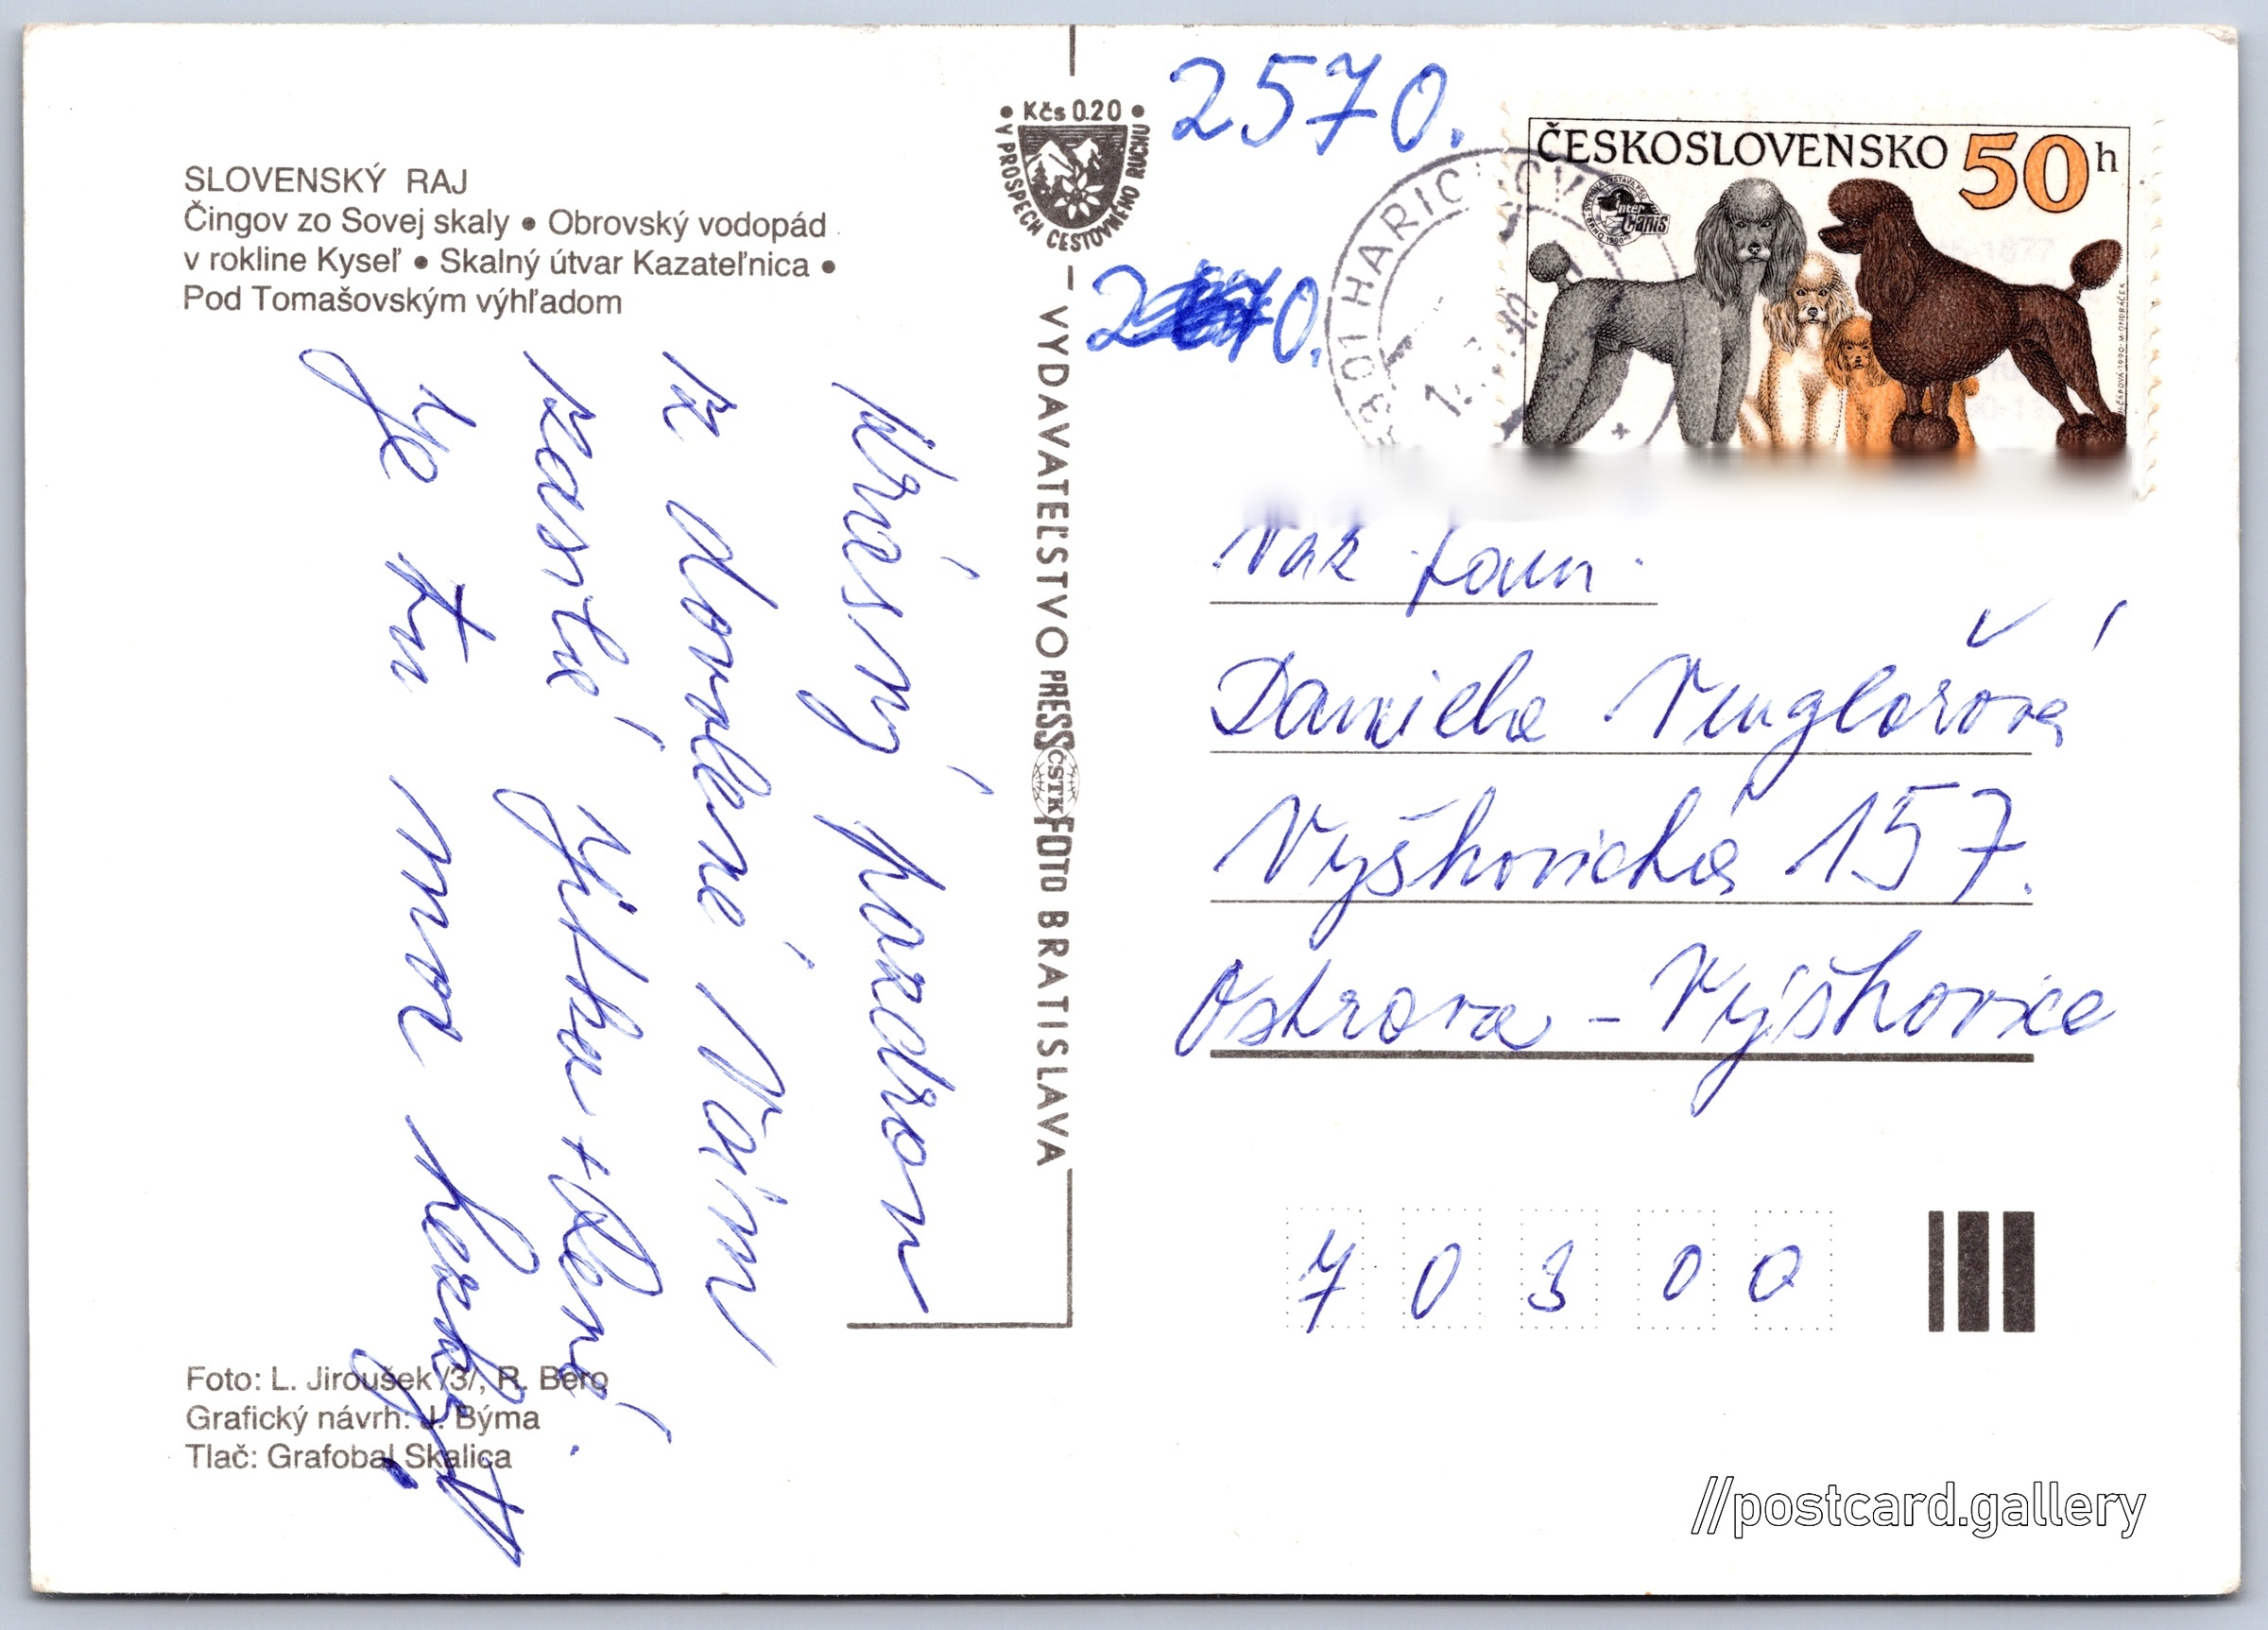 SLOVENSKÝ RAJ
Čingov zo Sovej skaly • Obrovský vodopád
v rokline Kyseľ • Skalný útvar Kazateľnica •
Pod Tomašovským výhľadom
Krásný pozdrav
z dovolené Vám
posílá Jitka + René.
Je tu moc hezky!
Foto: L. Jiroušek /3/, R. Bero
Grafický návrh: J. Býma
Tlač: Grafobal Skalica
• Kčs 0.20 •
V PROSPECH CESTOVNÉHO RUCHU
VYDAVATEĽSTVO PRESSFOTO BRATISLAVA
ČSTK
2570.
ČESKOSLOVENSKO 50 h
Inter Canis
Daniela Venglářová
Výškovická 157.
Ostrava - Výškovice
70300
//postcard.gallery